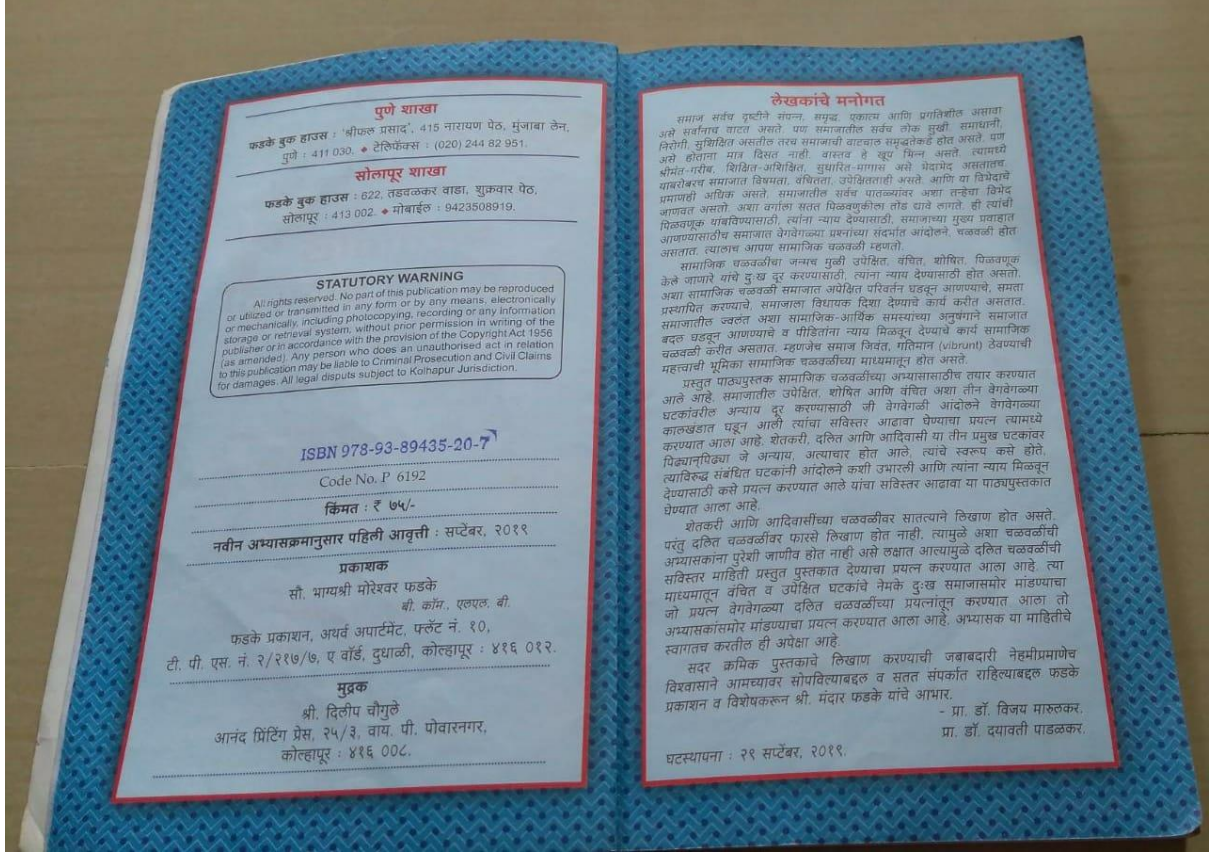 पुणे शाखा
फडके बुक हाउस : 'श्रीफल प्रसाद', 415 नारायण पेठ, मुंजाबा लेन,
पुणे : 411 030. ◆ टेलिफॅक्स : (020) 244 82 951.
सोलापूर शाखा
फडके बुक हाउस : 622, तडवळकर वाडा, शुक्रवार पेठ,
सोलापूर : 413 002. ◆ मोबाईल : 9423508919.
STATUTORY WARNING
All rights reserved. No part of this publication may be reproduced
or utilized or transmitted in any form or by any means, electronically
or mechanically, including photocopying, recording or any information
storage or retrieval system, without prior permission in writing of the
publisher or in accordance with the provision of the Copyright Act 1956
(as amended). Any person who does an unauthorised act in relation
to this publication may be liable to Criminal Prosecution and Civil Claims
for damages. All legal disputes subject to Kolhapur Jurisdiction.
ISBN 978-93-89435-20-7
Code No. P 6192
किंमत : ₹ ७५/-
नवीन अभ्यासक्रमानुसार पहिली आवृत्ती : सप्टेंबर, २०१९
प्रकाशक
सौ. भाग्यश्री मोरेश्वर फडके
बी. कॉम., एलएल. बी.
फडके प्रकाशन, अथर्व अपार्टमेंट, फ्लॅट नं. १०,
टी. पी. एस. नं. २/२१७/७, ए वॉर्ड, दुधाळी, कोल्हापूर : ४१६ ०१२.
मुद्रक
श्री. दिलीप चौगुले
आनंद प्रिंटिंग प्रेस, २५/३, वाय. पी. पोवारनगर,
कोल्हापूर : ४१६ ००८.
लेखकांचे मनोगत
समाज सर्वच दृष्टीने संपन्न, समृद्ध, एकात्म आणि प्रगतिशील असावा
असे सर्वांनाच वाटत असते. पण समाजातील सर्वच लोक सुखी, समाधानी,
निरोगी, सुशिक्षित असतील तरच समाजाची वाटचाल समृद्धतेकडे होत असते. पण
असे होताना मात्र दिसत नाही. वास्तव हे खूप भिन्न असते. त्यामध्ये
श्रीमंत-गरीब, शिक्षित-अशिक्षित, सुधारित-मागास असे भेदाभेद असतातच.
याबरोबरच समाजात विषमता, वंचितता, उपेक्षितताही असते. आणि या विभेदाचे
प्रमाणही अधिक असते. समाजातील सर्वच पातळ्यांवर अशा तऱ्हेचा विभेद
जाणवत असतो. अशा वर्गाला सतत पिळवणुकीला तोंड द्यावे लागते. ही त्यांची
पिळवणूक थांबविण्यासाठी, त्यांना न्याय देण्यासाठी, समाजाच्या मुख्य प्रवाहात
आणण्यासाठीच समाजात वेगवेगळ्या प्रश्नांच्या संदर्भात आंदोलने, चळवळी होत
असतात. त्यालाच आपण सामाजिक चळवळी म्हणतो.
सामाजिक चळवळींचा जन्मच मुळी उपेक्षित, वंचित, शोषित, पिळवणूक
केले जाणारे यांचे दुःख दूर करण्यासाठी, त्यांना न्याय देण्यासाठी होत असतो.
अशा सामाजिक चळवळी समाजात अपेक्षित परिवर्तन घडवून आणण्याचे, समता
प्रस्थापित करण्याचे, समाजाला विधायक दिशा देण्याचे कार्य करीत असतात.
समाजातील ज्वलंत अशा सामाजिक-आर्थिक समस्यांच्या अनुषंगाने समाजात
बदल घडवून आणण्याचे व पीडितांना न्याय मिळवून देण्याचे कार्य सामाजिक
चळवळी करीत असतात. म्हणजेच समाज जिवंत, गतिमान (vibrunt) ठेवण्याची
महत्त्वाची भूमिका सामाजिक चळवळींच्या माध्यमातून होत असते.
प्रस्तुत पाठ्यपुस्तक सामाजिक चळवळींच्या अभ्यासासाठीच तयार करण्यात
आले आहे. समाजातील उपेक्षित, शोषित आणि वंचित अशा तीन वेगवेगळ्या
घटकांवरील अन्याय दूर करण्यासाठी जी वेगवेगळी आंदोलने वेगवेगळ्या
कालखंडात घडून आली त्यांचा सविस्तर आढावा घेण्याचा प्रयत्न त्यामध्ये
करण्यात आला आहे. शेतकरी, दलित आणि आदिवासी या तीन प्रमुख घटकांवर
पिढ्यान्‌पिढ्या जे अन्याय, अत्याचार होत आले, त्यांचे स्वरूप कसे होते,
त्याविरुद्ध संबंधित घटकांनी आंदोलने कशी उभारली आणि त्यांना न्याय मिळवून
देण्यासाठी कसे प्रयत्न करण्यात आले यांचा सविस्तर आढावा या पाठ्यपुस्तकात
घेण्यात आला आहे.
शेतकरी आणि आदिवासींच्या चळवळीवर सातत्याने लिखाण होत असते.
परंतु दलित चळवळीवर फारसे लिखाण होत नाही. त्यामुळे अशा चळवळींची
अभ्यासकांना पुरेशी जाणीव होत नाही असे लक्षात आल्यामुळे दलित चळवळींची
सविस्तर माहिती प्रस्तुत पुस्तकात देण्याचा प्रयत्न करण्यात आला आहे. त्या
माध्यमातून वंचित व उपेक्षित घटकांचे नेमके दुःख समाजासमोर मांडण्याचा
जो प्रयत्न वेगवेगळ्या दलित चळवळींच्या प्रयत्नांतून करण्यात आला तो
अभ्यासकांसमोर मांडण्याचा प्रयत्न करण्यात आला आहे. अभ्यासक या माहितीचे
स्वागतच करतील ही अपेक्षा आहे.
सदर क्रमिक पुस्तकाचे लिखाण करण्याची जबाबदारी नेहमीप्रमाणेच
विश्वासाने आमच्यावर सोपविल्याबद्दल व सतत संपर्कात राहिल्याबद्दल फडके
प्रकाशन व विशेषकरून श्री. मंदार फडके यांचे आभार.
- प्रा. डॉ. विजय मारुलकर.
प्रा. डॉ. दयावती पाडळकर.
घटस्थापना : २९ सप्टेंबर, २०१९.